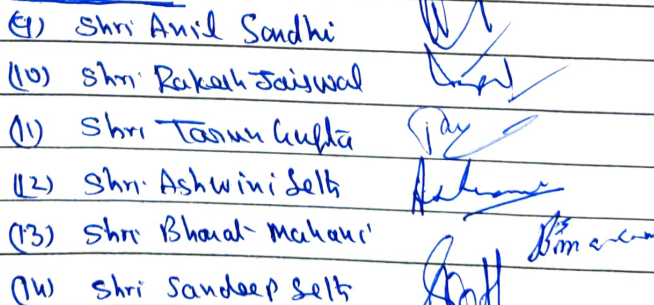 (9) Shri Anil Sondhi
(10) Shri Rakesh Jaiswal
(11) Shri Tarun Gupta
(12) Shri Ashwini Seth
(13) Shri Bharat
(14) Shri Sandeep Seth